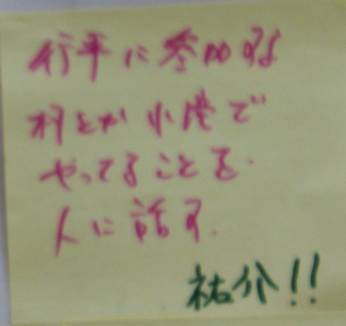 行事に参加する
村とか小滝で
やってることを.
人に話す.
祐介!!